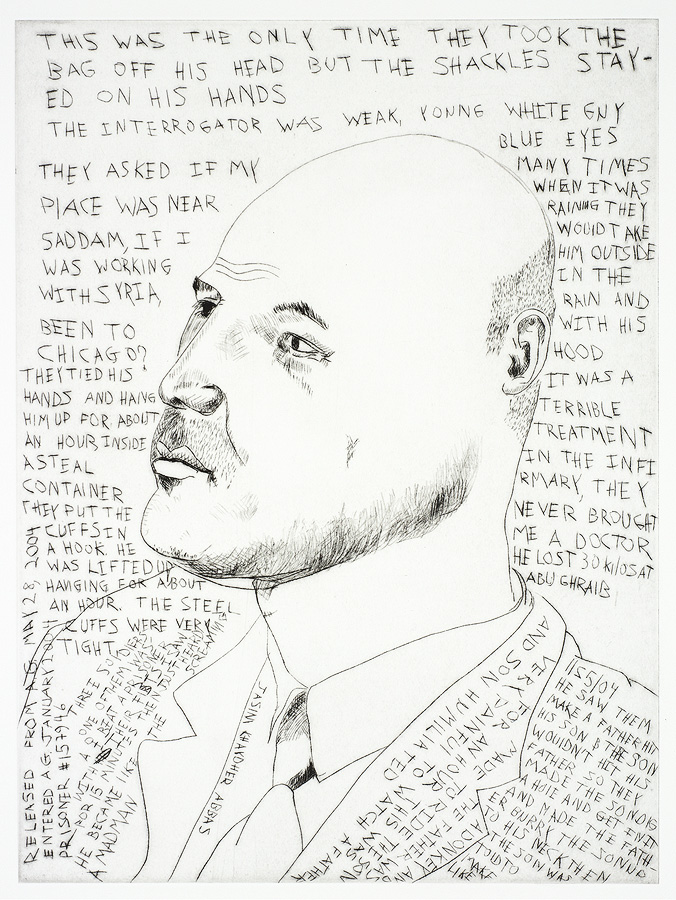 THIS WAS THE ONLY TIME THEY TOOK THE
BAG OFF HIS HEAD BUT THE SHACKLES STAY-
ED ON HIS HANDS
THE INTERROGATOR WAS WEAK, YONNG WHITE GNY
BLUE EYES
THEY ASKED IF MY
PLACE WAS NEAR
SADDAM, IF I
WAS WORKING
WITH SYRIA,
BEEN TO
CHICAGO?
THEY TIED HIS
HANDS AND HANG
HIM UP FOR ABOUT
AN HOUR, INSIDE
A STEAL
CONTAINER
THEY PUT THE
CUFFS IN
A HOOK. HE
WAS LIFTED UP
HANGING FOR ABOUT
AN HOUR. THE STEEL
CUFFS WERE VERY
TIGHT.
MANY TIMES
WHEN IT WAS
RAINING THEY
WOULD TAKE
HIM OUTSIDE
IN THE
RAIN AND
WITH HIS
HOOD
IT WAS A
TERRIBLE
TREATMENT
IN THE INFI
RMARY, THEY
NEVER BROUGHT
ME A DOCTOR
HE LOST 30 KILOS AT
ABU GHRAIB
RELEASED FROM A.G. MAY 28, 2004
ENTERED A.G. JANUARY 2004
PRISONER #157946
HE BECAME
A MADMAN LIKE
SCREAMING
JASIM KHAYDHER ABBAS
AND SON HUMILIATED
VERY PAINFUL TO WATCH
FOR AN HOUR
MADE THE FATHER
RIDE
A DONKEY
LIKE
A FATHER
1/55/04
HE SAW THEM
MAKE A FATHER HIT
HIS SON & THE SON
WOULDN'T HIT HIS
FATHER SO THEY
MADE THE SON DIG
A HOLE AND GET IN IT
AND MADE THE FATH-
ER BURRY THE SON UP
TO HIS NECK THEN
THE SON WAS
TOLD TO